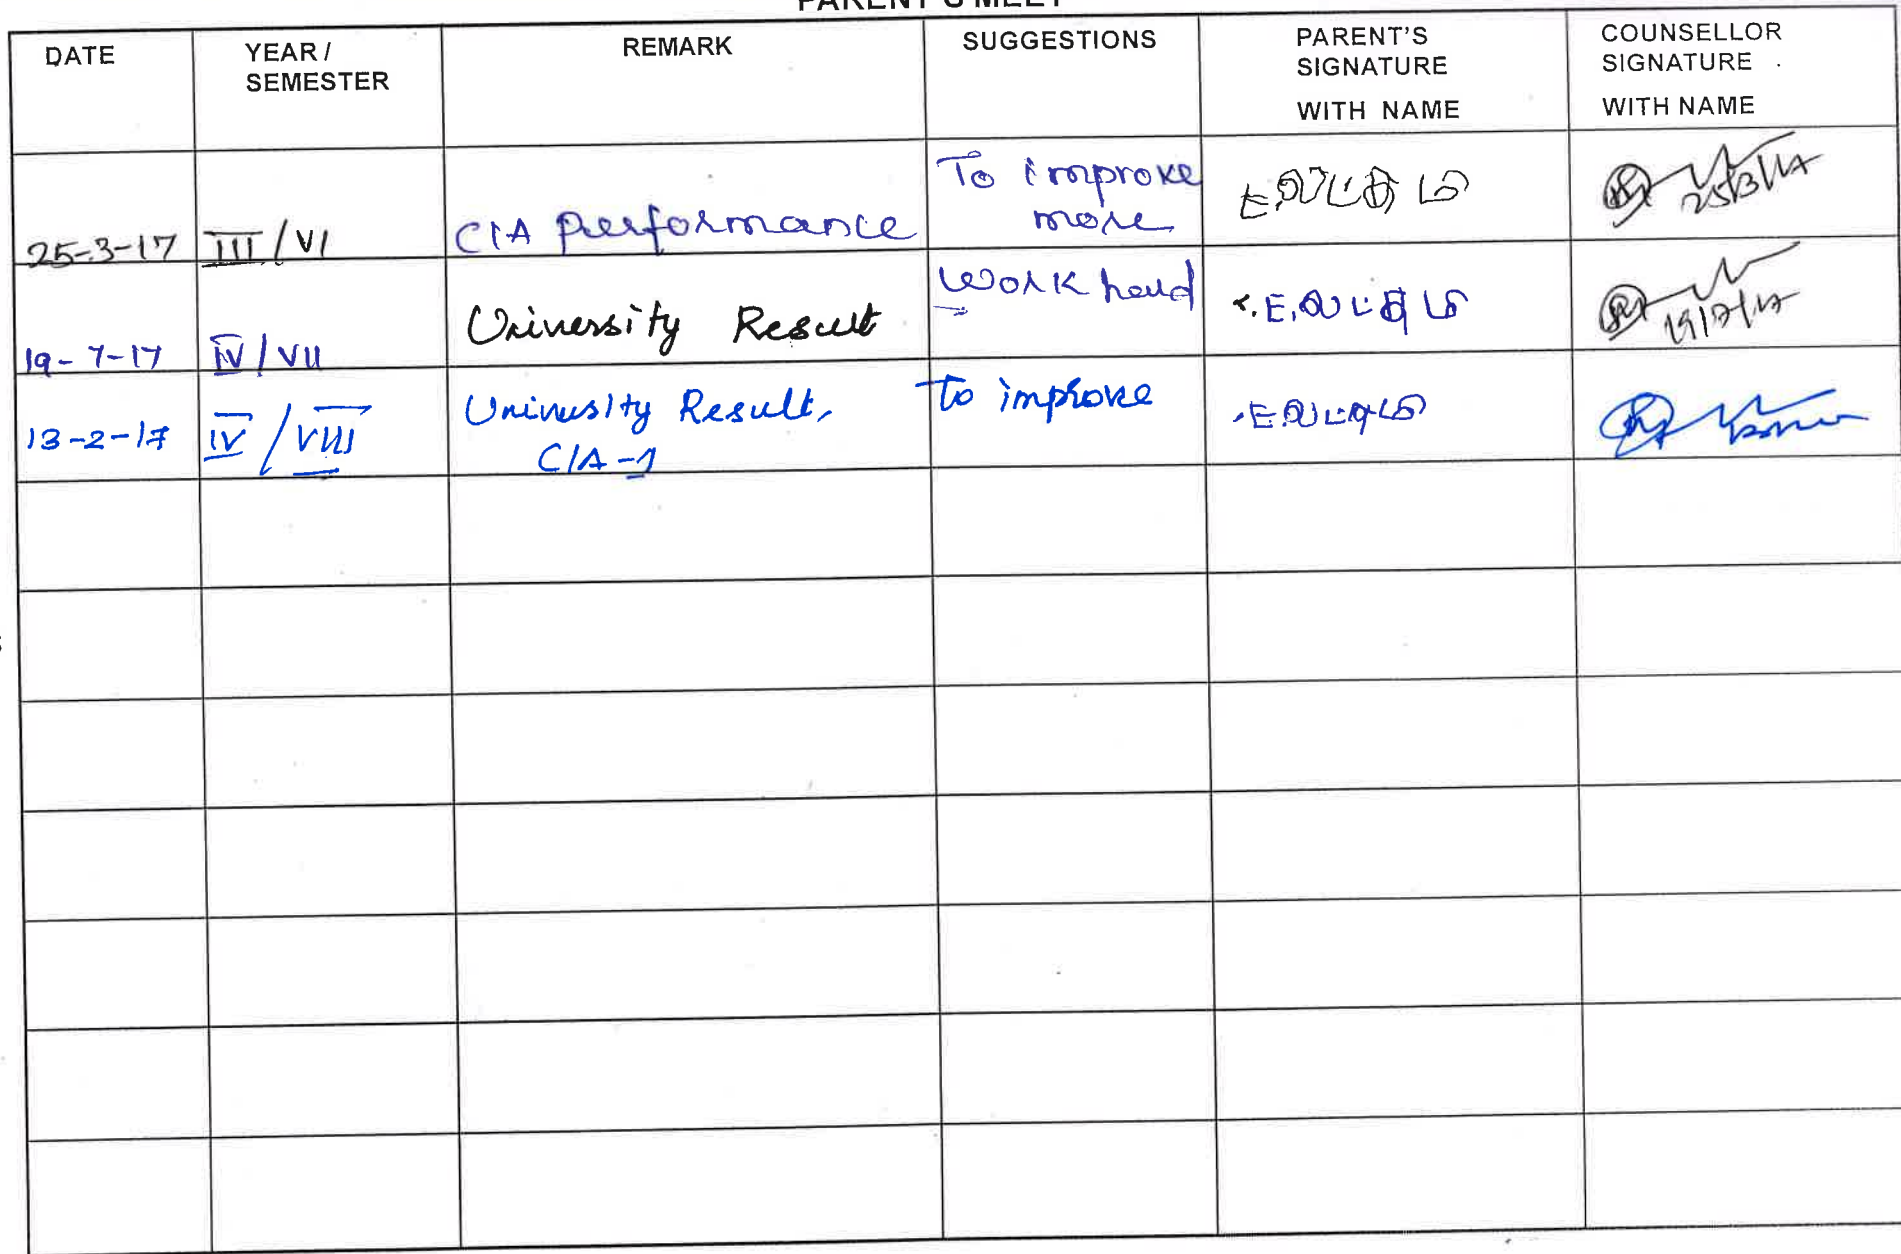 PARENT'S MEET
DATE
YEAR / SEMESTER
REMARK
SUGGESTIONS
PARENT'S SIGNATURE WITH NAME
COUNSELLOR SIGNATURE WITH NAME
25-3-17 III / VI CIA performance To improve more 25/3/17
19-7-17 IV / VII University Result Work hard 19/7/17
13-2-17 IV / VIII University Result, CIA-1 To improve